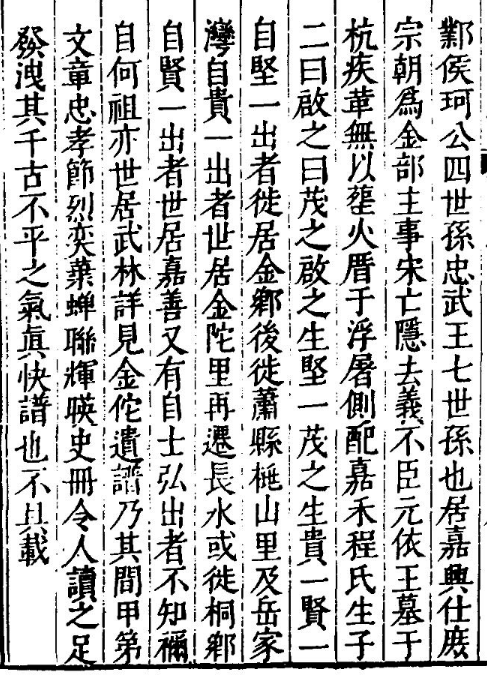 鄴侯珂公四世孫忠武王七世孫也居嘉興仕度
宗朝爲金部主事宋亡隱去義不臣元依王墓于
杭疾革無以塟火厝于浮屠側配嘉禾程氏生子
二曰啟之曰茂之啟之生堅一茂之生貴一賢一
自堅一出者徙居金鄉後徙蕭縣梃山里及岳家
灣自貴一出者世居金陀里再遷長水或徙桐鄉
自賢一出者世居嘉善又有自士弘出者不知禰
自何祖亦世居武林詳見金佗遺譜乃其間甲第
文章忠孝節烈奕葉蟬聯輝暎史冊令人讀之足
發洩其千古不平之氣眞快譜也不且載